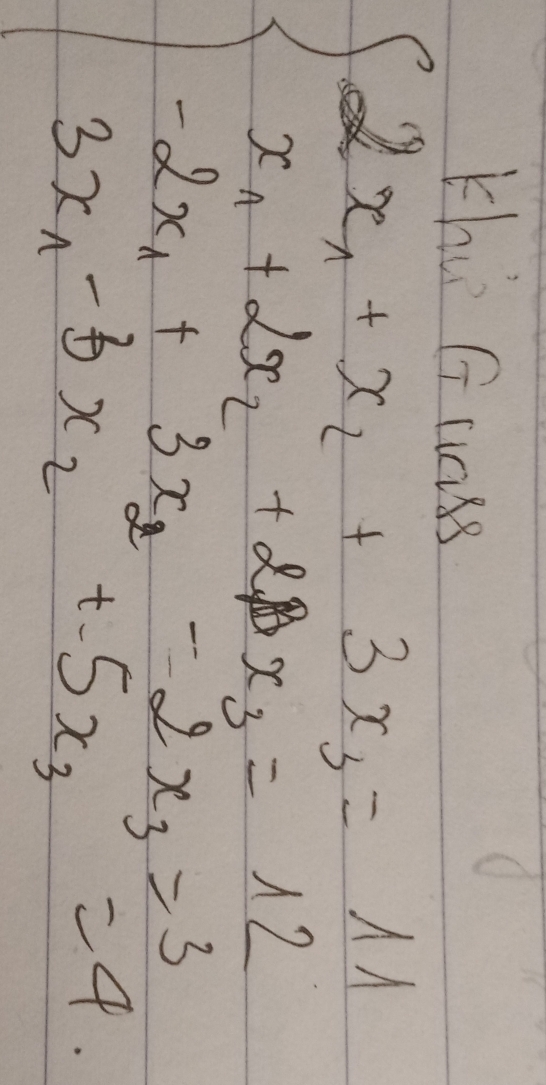 khử Guass
2x₁ + x₂ + 3x₃ = 11
x₁ + 2x₂ + 2x₃ = 12
-2x₁ + 3x₂ - 2x₃ = 3
3x₁ - x₂ + 5x₃ = 4.